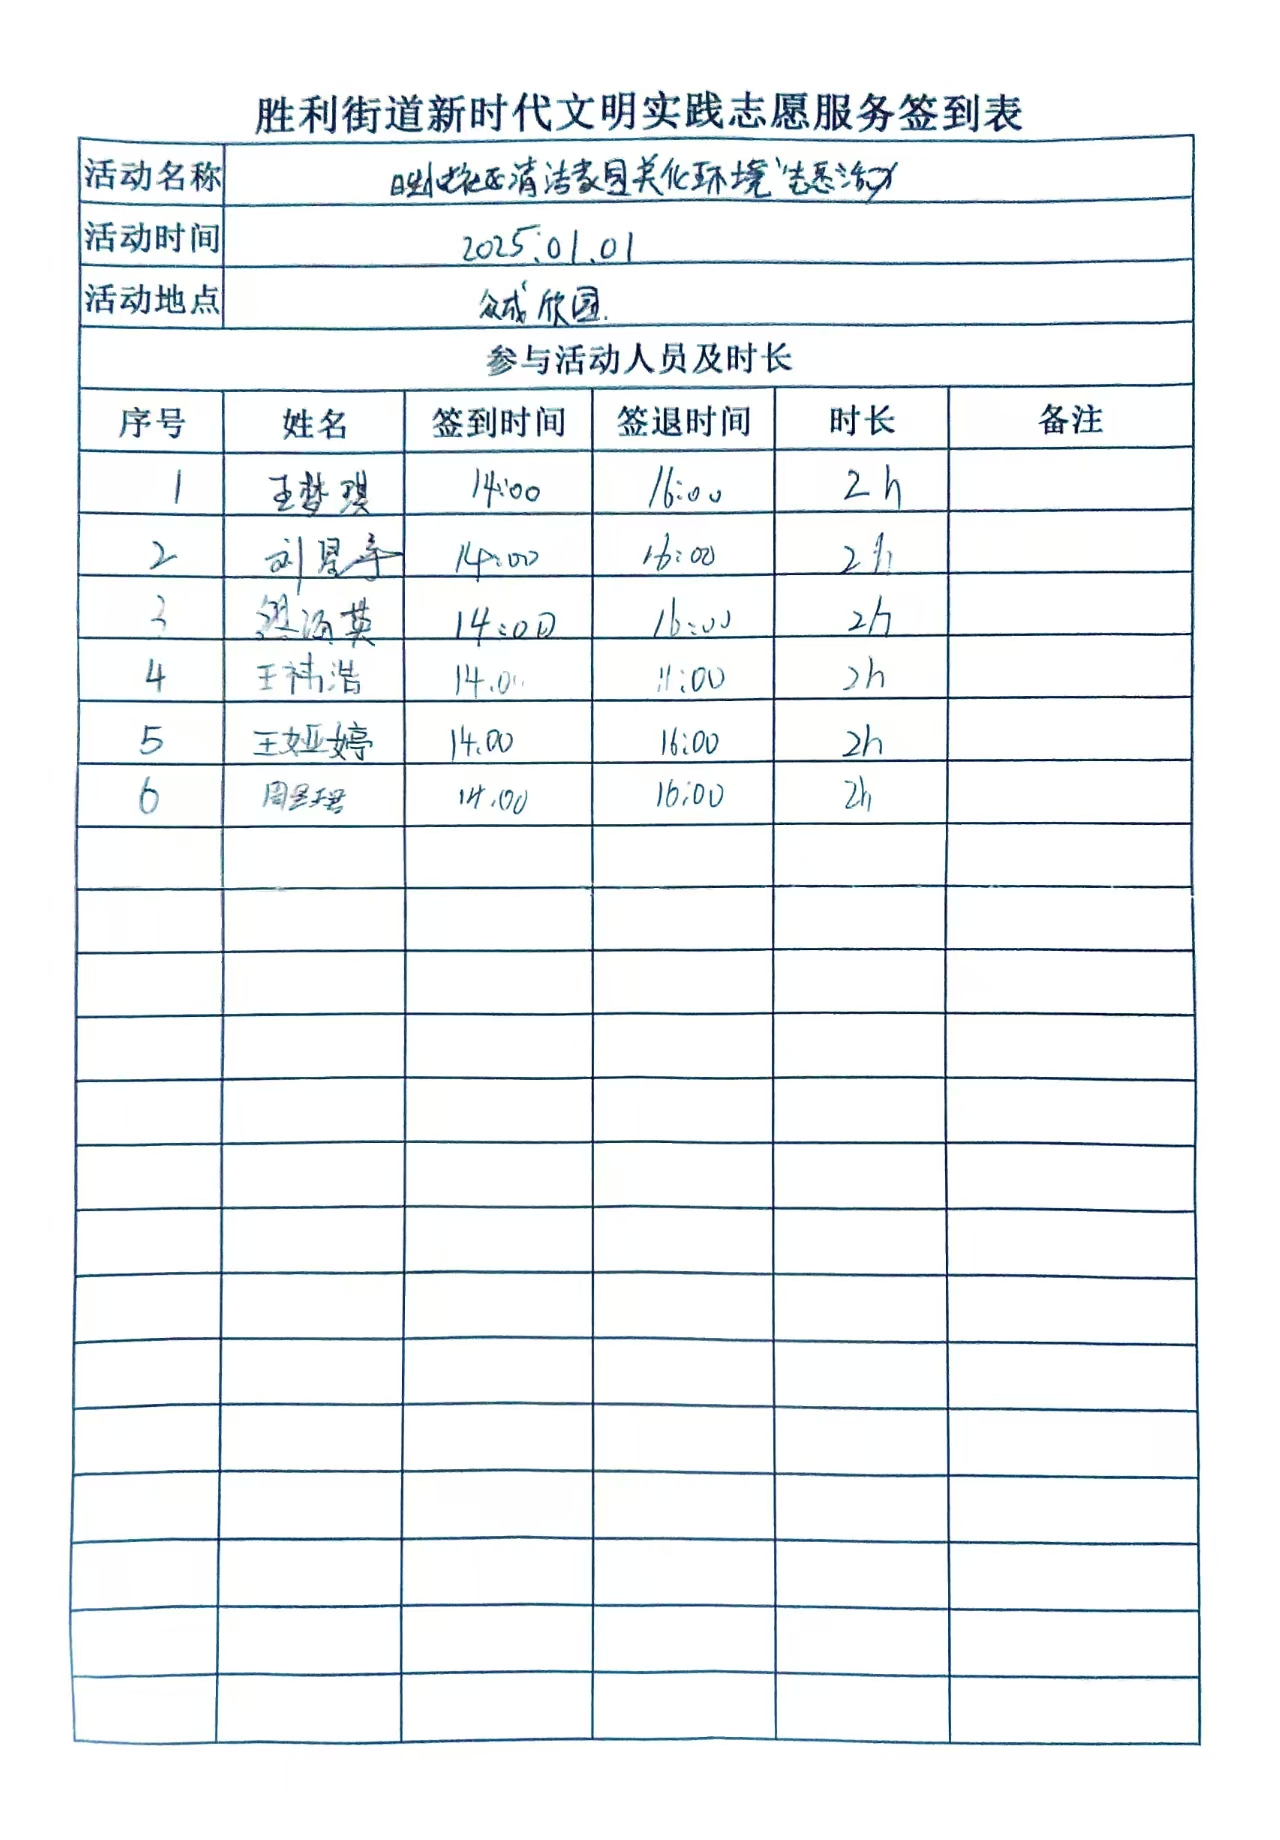 胜利街道新时代文明实践志愿服务签到表
活动名称 社区清洁家园美化环境志愿活动
活动时间 2025.01.01
活动地点 众成欣园.
参与活动人员及时长
序号 姓名 签到时间 签退时间 时长 备注
1 王梦琪 14:00 16:00 2h
2 刘星宇 14:00 16:00 2h
3 英 14:00 16:00 2h
4 王祎浩 14.0 :00 2h
5 王娅婷 14.00 16:00 2h
6 周昱珺 14.00 16:00 2h